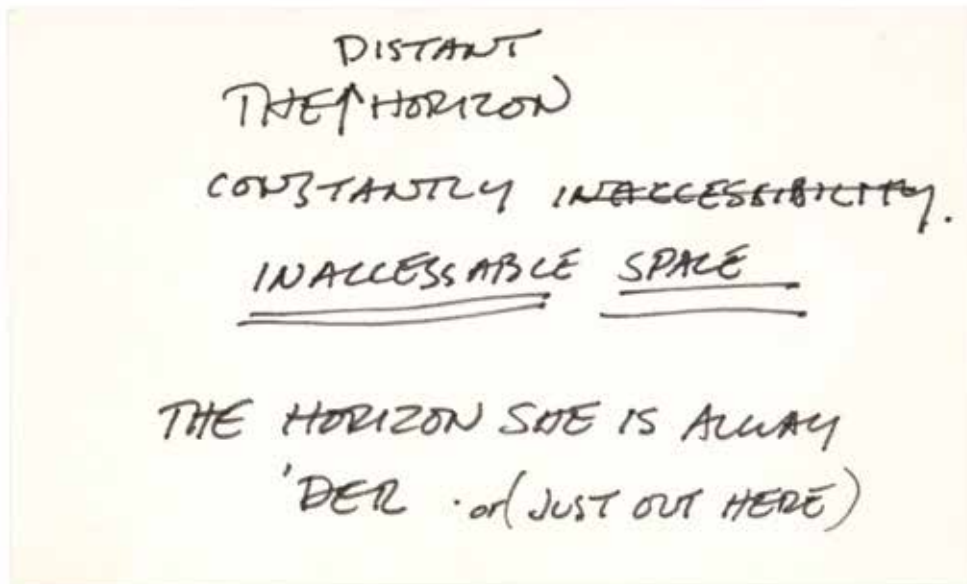 DISTANT
THE↑HORIZON
CONSTANTLY INACCESSIBILITY.
INACCESSABLE SPACE
THE HORIZON SHE IS ALWAY
'DER . or (JUST OUT HERE)